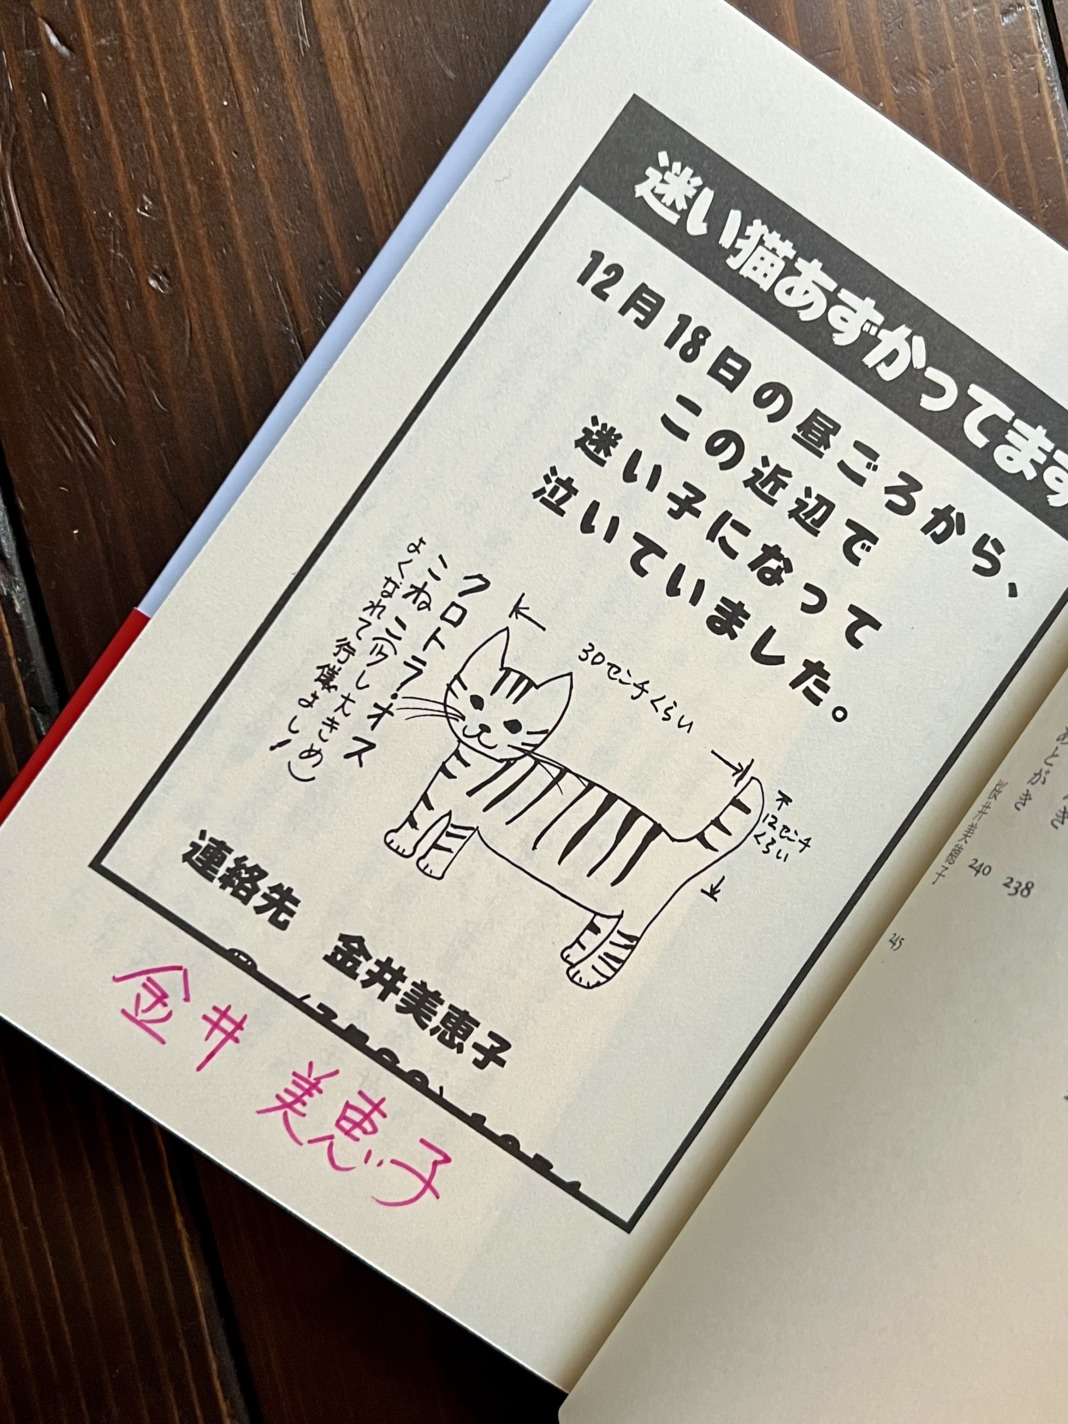 迷い猫あずかってます
12月18日の昼ごろから、
この近辺で
迷い子になって
泣いていました。
クロトラ・オス
こねこ(少し大きめ)
よくなれて行儀よし!
30センチくらい
12センチ
くらい
連絡先 金井美恵子
金井 美恵子
あとがき
金井美恵子
240
238
245